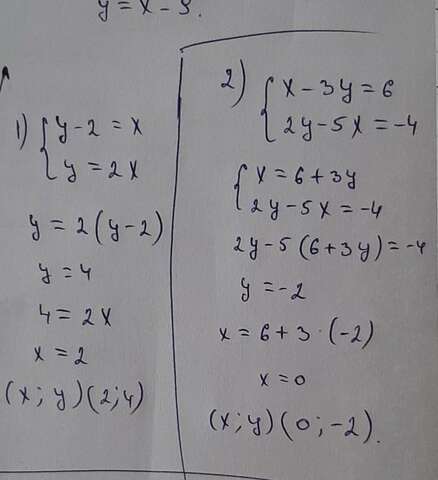 y = x - 3.
1) { y - 2 = x
y = 2x
y = 2(y-2)
y = 4
4 = 2x
x = 2
(x; y)(2; 4)
2) { x - 3y = 6
2y - 5x = -4
{ x = 6 + 3y
2y - 5x = -4
2y - 5(6+3y) = -4
y = -2
x = 6 + 3·(-2)
x = 0
(x; y)(0; -2).